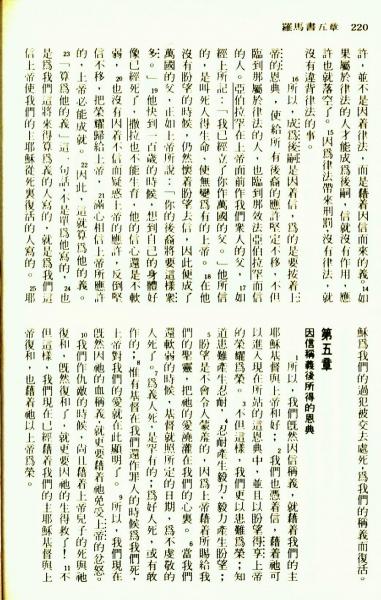 羅馬書五章 220
許，並不是因律法，而是藉着因信而來的義。14如
果屬於律法的人才能成爲後嗣，信就沒有作用，應
許也就落空了。15因爲律法帶來刑罰，沒有律法，就
沒有違背律法的事。
16所以，成爲後嗣是因着信，爲的是要按着上
帝的恩典，使給所有後裔的應許堅定不移，不但
臨到那屬於律法的人，也臨到那效法亞伯拉罕而信
的人。亞伯拉罕在上帝面前作我們衆人的父，17如
經上所記：「我已經立了你作萬國的父。」他所信
的，是叫死人得生命，使無變爲有的上帝。18在他
沒有盼望的時候，仍然懷着盼望去信，因此便成了
萬國的父，正如上帝所說：「你的後裔將要這樣衆
多。」19他快到一百歲的時候，想到自己的身體好
像已經死了，撒拉也不能生育，他的信心還是不軟
弱；20也沒有因着不信而疑惑上帝的應許，反倒堅
信不移，把榮耀歸給上帝，21滿心相信上帝所應許
的，上帝必能成就。22因此，這就算爲他的義。
23「算爲他的義」這一句話，不是單爲他寫的，24也
是爲我們這將來得算爲義的人寫的，就是爲我們這
信上帝使我們的主耶穌從死裏復活的人寫的。25耶
穌爲我們的過犯被交去處死，爲我們的稱義而復活。
第五章
因信稱義後所得的恩典
1所以，我們旣然因信稱義，就藉着我們的主
耶穌基督與上帝和好；2我們也憑着信，藉着祂可
以進入現在所站的這恩典中，並且以盼望得享上帝
的榮耀爲榮。3不但這樣，我們更以患難爲榮；知
道患難產生忍耐，4忍耐產生毅力，毅力產生盼望；
5盼望是不會令人蒙羞的，因爲上帝藉着所賜給我
們的聖靈，把祂的愛澆灌在我們的心裏。6當我們
還軟弱的時候，基督就照所定的日期，爲不虔敬的
人死了。7爲義人死，是罕有的；爲好人死，或有敢
作的，8惟有基督在我們還作罪人的時候爲我們死，
上帝對我們的愛就在此顯明了。9所以，我們現在
旣然因祂的血稱義，就更要藉着祂免受上帝的忿怒。
10我們作仇敵的時候，尚且藉着上帝兒子的死與祂
復和，旣然復和了，就更要因祂的生得救了！11不
但這樣，我們現在已經藉着我們的主耶穌基督與上
帝復和，也藉着祂以上帝爲榮。